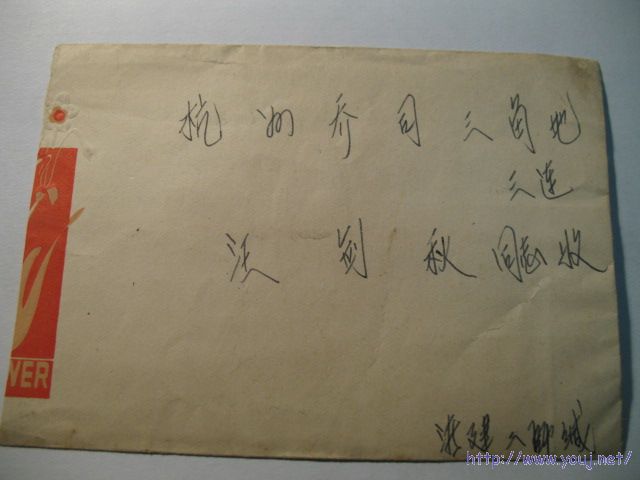 杭州乔司三角地
三连
汪剑秋同志收
VER
浙建八聊城
http://www.youj.net/